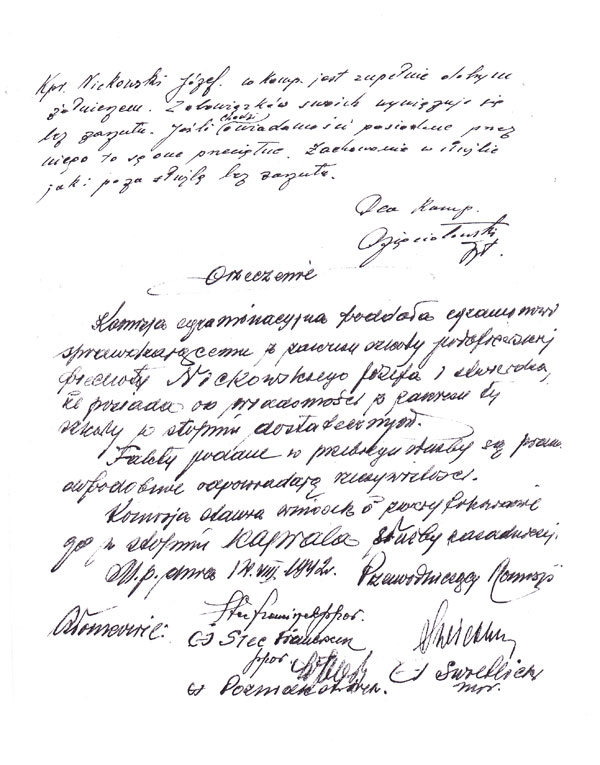 Kpr. Nickowski Józef. w komp. jest zupełnie dobrym
żołnierzem. Z obowiązków swoich wywiązuje się
bez zarzutu. Jeśli chodzi o wiadomości posiadane przez
niego to są one przeciętne. Zachowanie w służbie
jak i poza służbą bez zarzutu.
Dca Komp.
Orzeczenie
Komisja egzaminacyjna poddała egzaminowi
sprawdzającemu z zakresu szkoły podoficerskiej
piechoty Nickowskiego Józefa i stwierdza,
że posiada on wiadomości z zakresu tej
szkoły w stopniu dostatecznym.
Fakty podane w przebiegu służby są prawdo
podobnie odpowiadają rzeczywistości.
Komisja stawia wniosek o zweryfikowanie
go w stopniu kaprala służby zasadniczej.
M.p. dnia 14.VIII.1942r. Przewodniczący Komisji
Członkowie:
(-) Stec Franciszek
ppor.
(-) (-)
mjr.